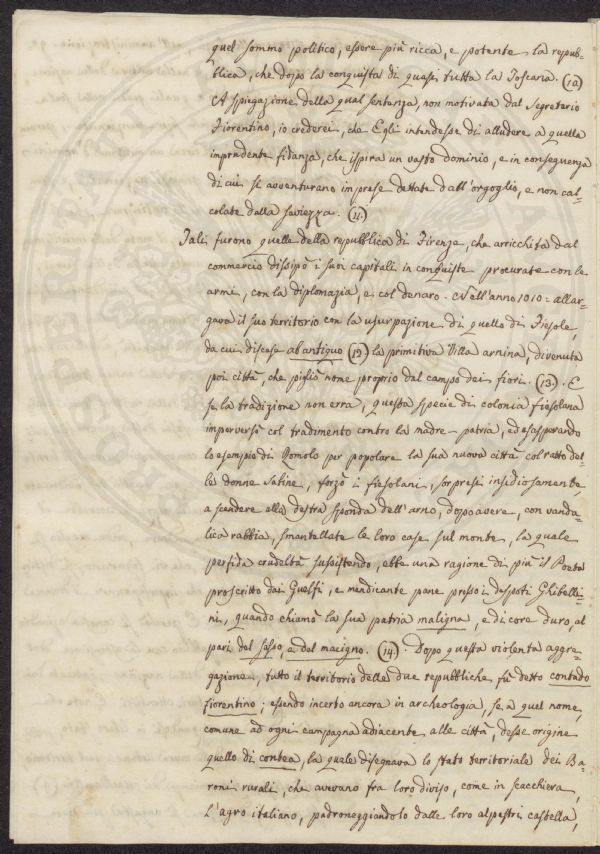 quel sommo politico, essere più ricca, e potente la repub-
blica, che dopo la conquista di quasi tutta la Toscana. (10)
A spiegazione della qual sentenza, non motivata dal Segretario
Fiorentino, io crederei, che Egli intendesse di alludere a quella
imprudente fidanza, che ispira un vasto dominio, e in conseguenza
di cui si avventurano imprese dettate dall'orgoglio, e non cal-
colate dalla saviezza. (11.)
Tali furono quelle della repubblica di Firenze, che arricchita dal
commercio dissipò i suoi capitali in conquiste procurate con le
armi, con la diplomazia, e col denaro. Nell'anno 1010: allar-
gava il suo territorio con la usurpazione di quello di Fiesole,
da cui discese ab antiquo (12.) la primitiva Villa arnina, divenuta
poi città, che pigliò nome proprio dal campo dei fiori. (13.). E
se la tradizione non erra, questa specie di colonia fiesolana
imperversò col tradimento contro la madre-patria, ed esasperando
lo esempio di Romolo per popolare la sua nuova città col ratto del-
le donne Sabine, forzò i fiesolani, sorpresi insidiosamente,
a scendere alla destra sponda dell'arno, dopo avere, con vanda-
lica rabbia, smantellate le loro case sul monte, la quale
perfida crudeltà sussistendo, ebbe una ragione di più il Poeta
proscritto dai Guelfi, e mendicante pane presso i despoti Ghibelli-
ni, quando chiamò la sua patria maligna, e di core duro, al
pari del sasso, e del macigno. (14.). Dopo questa violenta aggre-
gazione, tutto il territorio delle due repubbliche fù detto contado
fiorentino; essendo incerto ancora in archeologia, se a quel nome,
comune ad ogni campagna adiacente alle città, desse origine
quello di contea, la quale disegnava lo stato territoriale dei Ba-
roni rurali, che avevano fra loro diviso, come in scacchiera,
l'agro italiano, padroneggiandolo dalle loro alpestri castella,